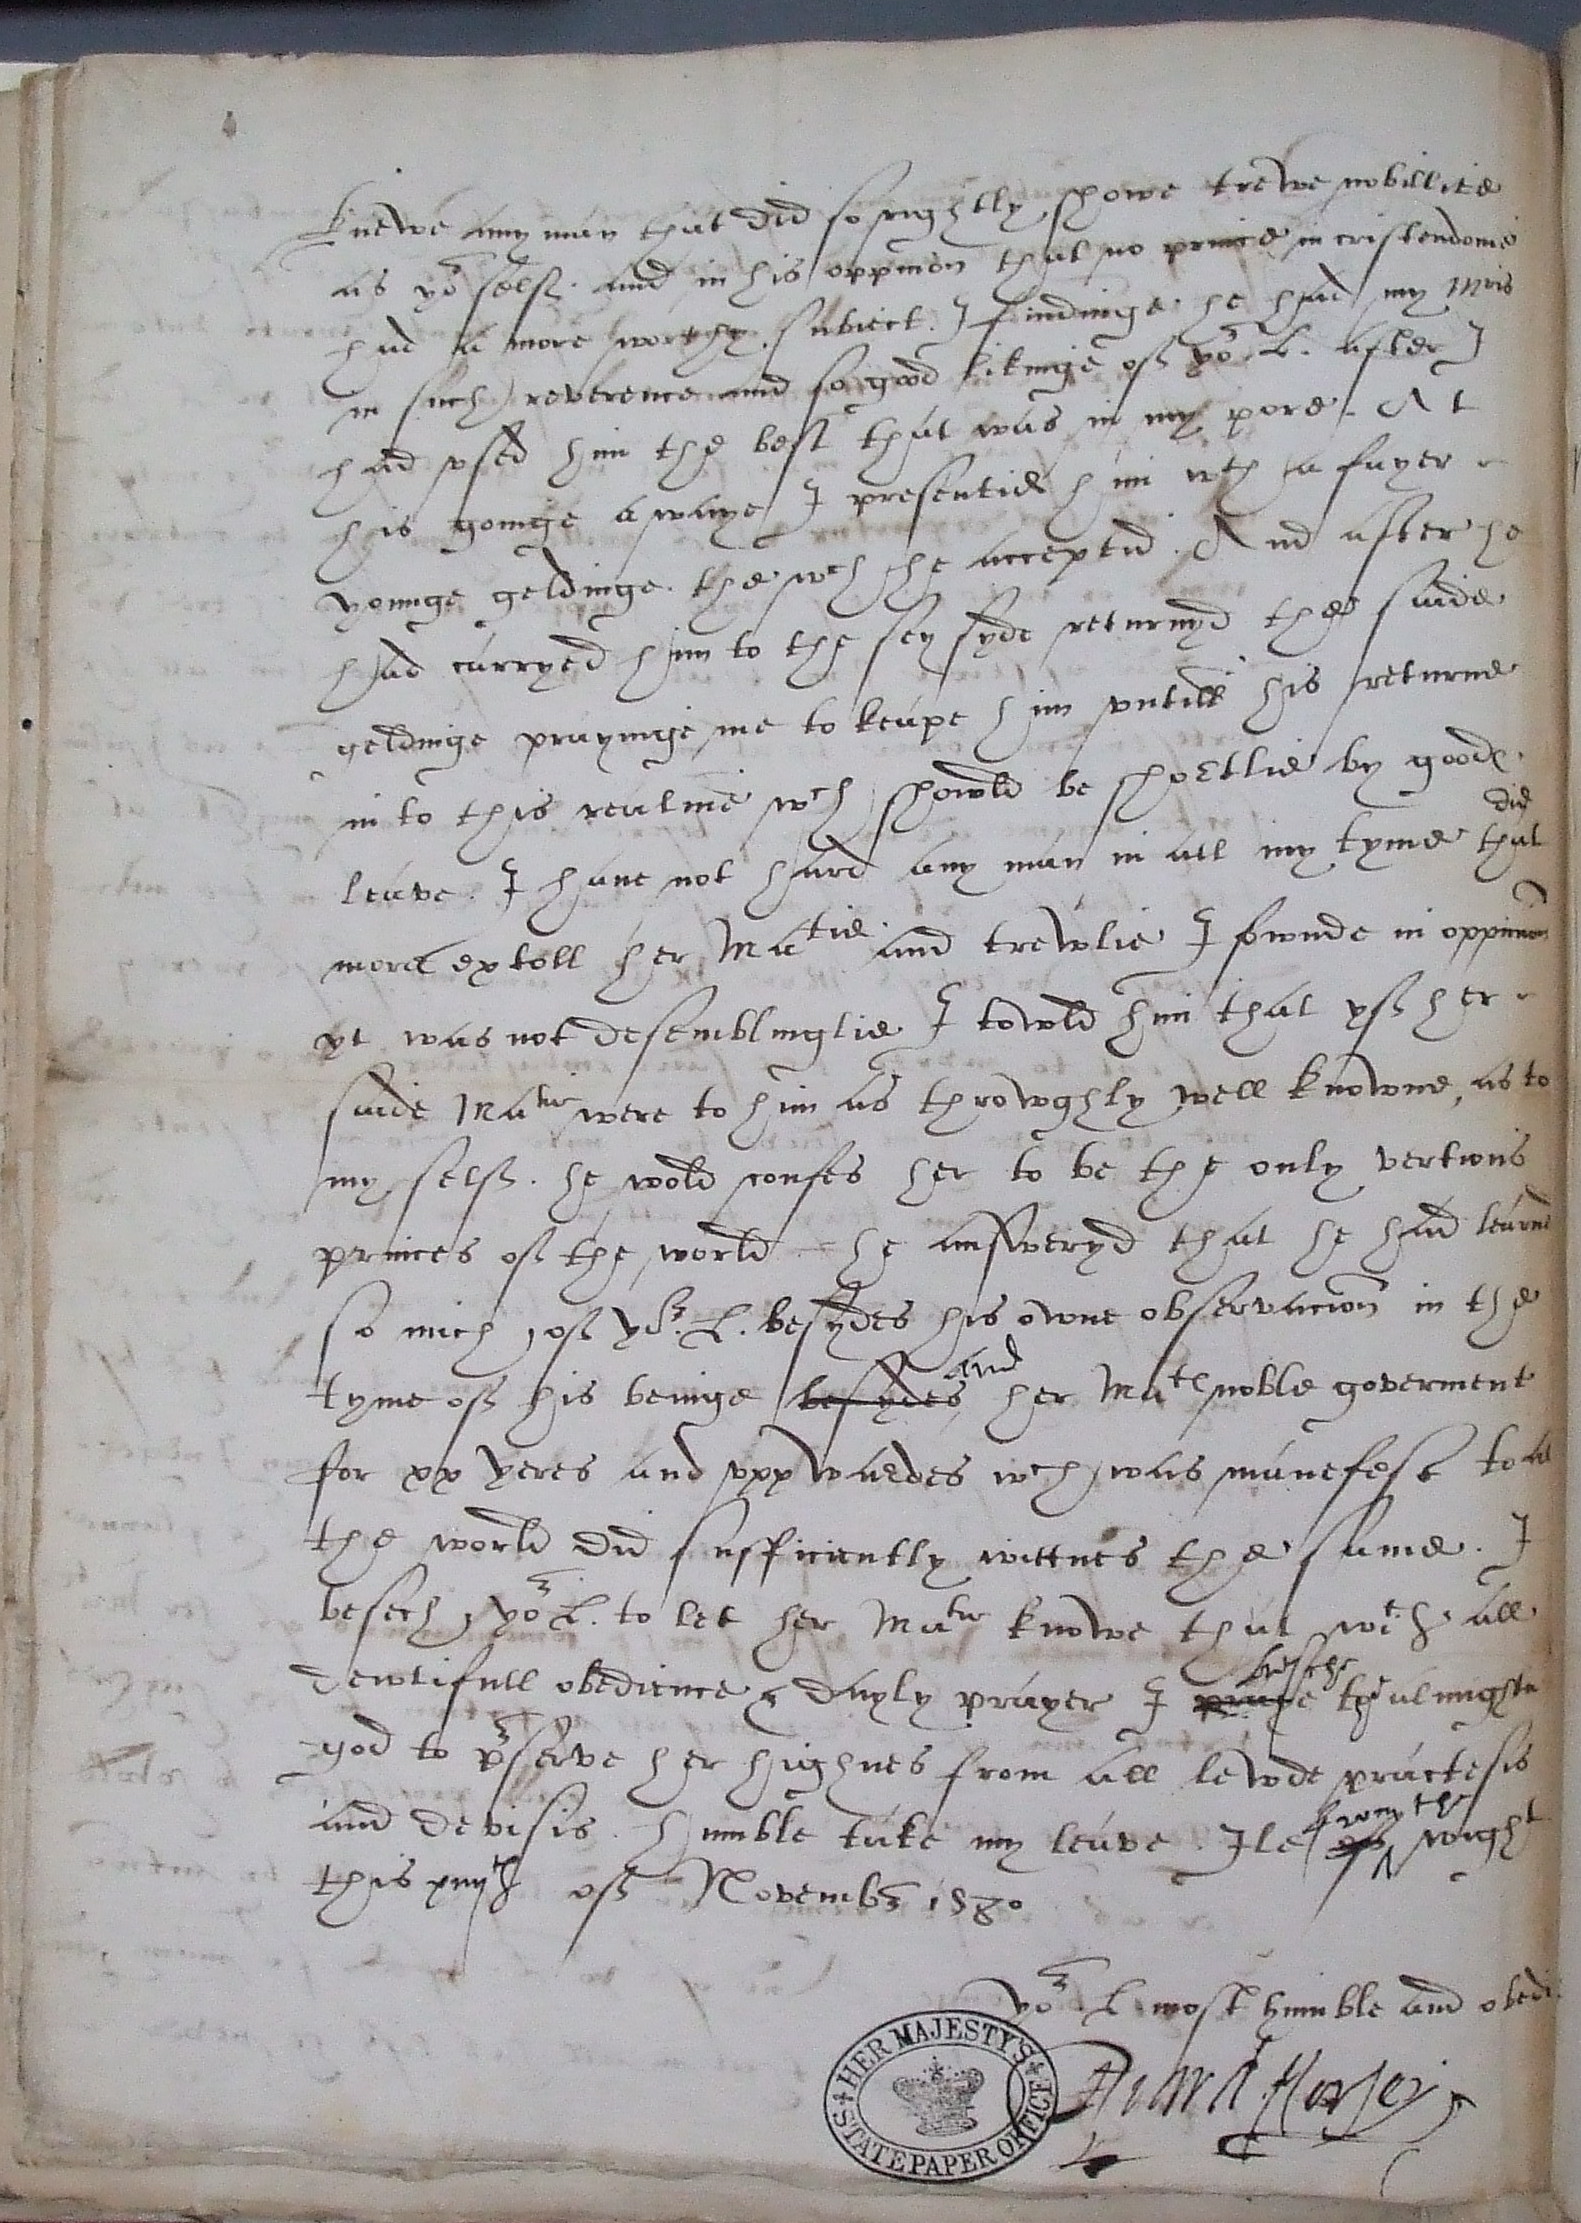 knewe any man that did so rightly showe trewe nobillitie
as yor selff. and in his oppinion that no prince in cristendome
had a more worthy subiect. I findinge he had my Mris
in such reverence and so good likinge off yor L. after I
had vsed him the best that was in my pore. At
his goinge awaye I presentid him wth a fayer
younge geldinge. the wch he acceptid. And after he
had carryed him to the sey syde returnyd the saide
geldinge prayinge me to keape him vntill his returne
in to this realme wch showld be shortlie by good
leave. I haue not hard any man in all my tyme that did
more extoll her Matie. and trewlie I fownde in oppinion
yt was not desemblinglie I towld him that yff her
saide Matie were to him as throwghly well knowne, as to
my selff. he wold confes her to be the only vertuus
princes off the world he answeryd that he had learnd
so mich off yor. L. besydes his owne observacion in the
tyme off his beinge besydes and her Mate noble goverment
for xx yeres and vppwardes wch was manefest to all
the world did sufficiently wittnes the same. I
besech yor L. to let her Matie knowe that wth all
dewtifull obedience & dayly prayer I praye beseche the almighte
god to pserve her highnes from all lewde practesis
and devisis. humble take my leave. Ile off from the wight
this xiiijth off Novembr 1580
yor L most humble and obedi
Edward Horsey
HER MAJESTY'S STATE PAPER OFFICE